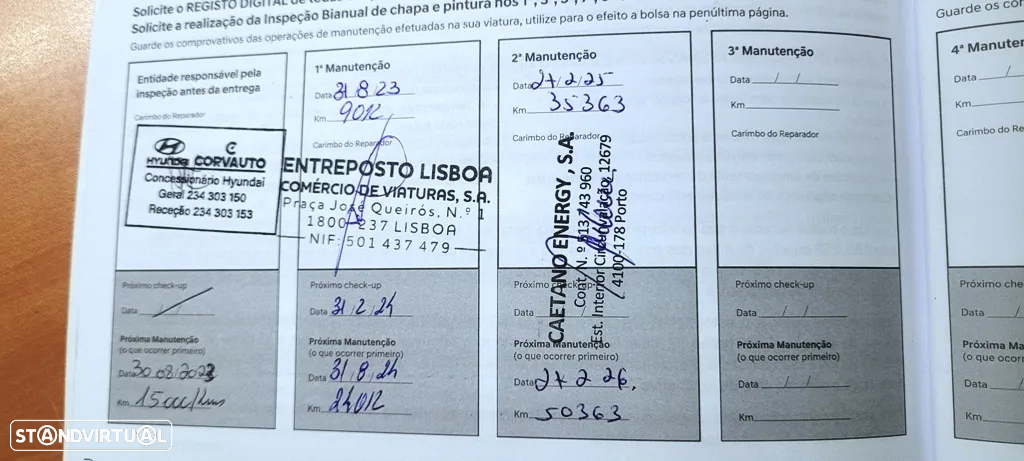 Solicite o REGISTO DIGITAL de
Solicite a realização da Inspeção Bianual de chapa e pintura nos 1º, 3º, 5º, 7º
Guarde os comprovativos das operações de manutenção efetuadas na sua viatura, utilize para o efeito a bolsa na penúltima página.
Guarde os
Entidade responsável pela
inspeção antes da entrega
Carimbo do Reparador
HYUNDAI CORVAUTO
Concessionário Hyundai
Geral 234 303 150
Receção 234 303 153
Próximo check-up
Data
Próxima Manutenção
(o que ocorrer primeiro)
Data 30/08/2023
Km 15000/1ano
1ª Manutenção
Data 31/8/23
Km 9012
Carimbo do Reparador
ENTREPOSTO LISBOA
COMÉRCIO DE VIATURAS, S.A.
Praça José Queirós, N.º 1
1800-237 LISBOA
NIF: 501 437 479
Próximo check-up
Data 31/2/24
Próxima Manutenção
(o que ocorrer primeiro)
Data 31/8/24
Km 24012
2ª Manutenção
Data 27/2/25
Km 35363
Carimbo do Reparador
CAETANO ENERGY, S.A.
Cont. N. º 513 743 960
Est. Interior Circunvalação, 12679
4100-178 Porto
Próximo check-up
Data
Próxima Manutenção
(o que ocorrer primeiro)
Data 27/2/26
Km 50363
3ª Manutenção
Data / /
Km
Carimbo do Reparador
Próximo check-up
Data / /
Próxima Manutenção
(o que ocorrer primeiro)
Data / /
Km
4ª
Data /
Km
Carimbo do
Próximo
Data /
Próxima
(o que
Data /
Km
STANDVIRTUAL